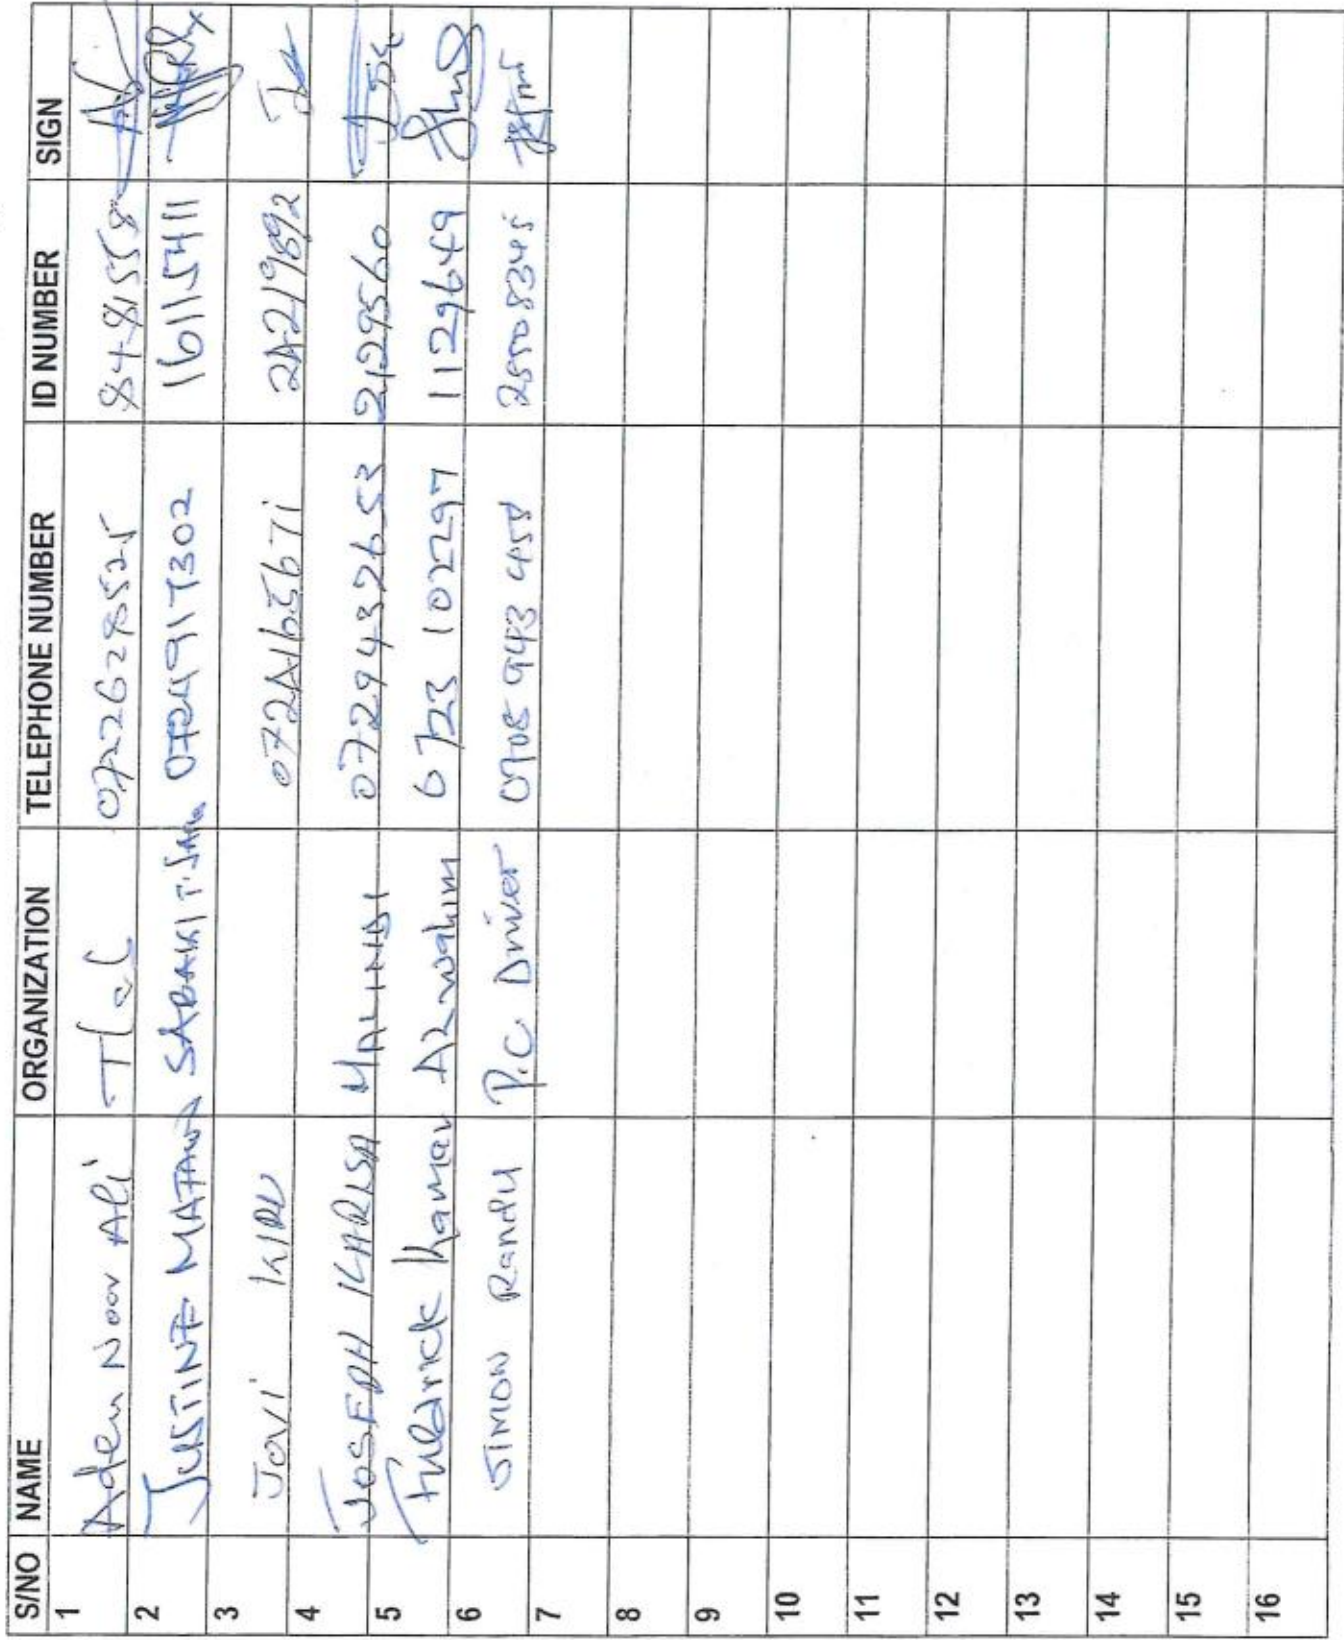 S/NO NAME ORGANIZATION TELEPHONE NUMBER ID NUMBER SIGN
1 Aden Noor Ali 0722628525 8481558
2 JUSTINE MATAWA SABAKI 0724917302 16115411
3 Jovi KIRU
4
5 JOSEPH KARISA MALINDI 0729432653 2129560
6 Fredrick Kamau 0723102297 11129649
7 SIMON Randu P.C. Driver 0708 943 458 25508345
8
9
10
11
12
13
14
15
16